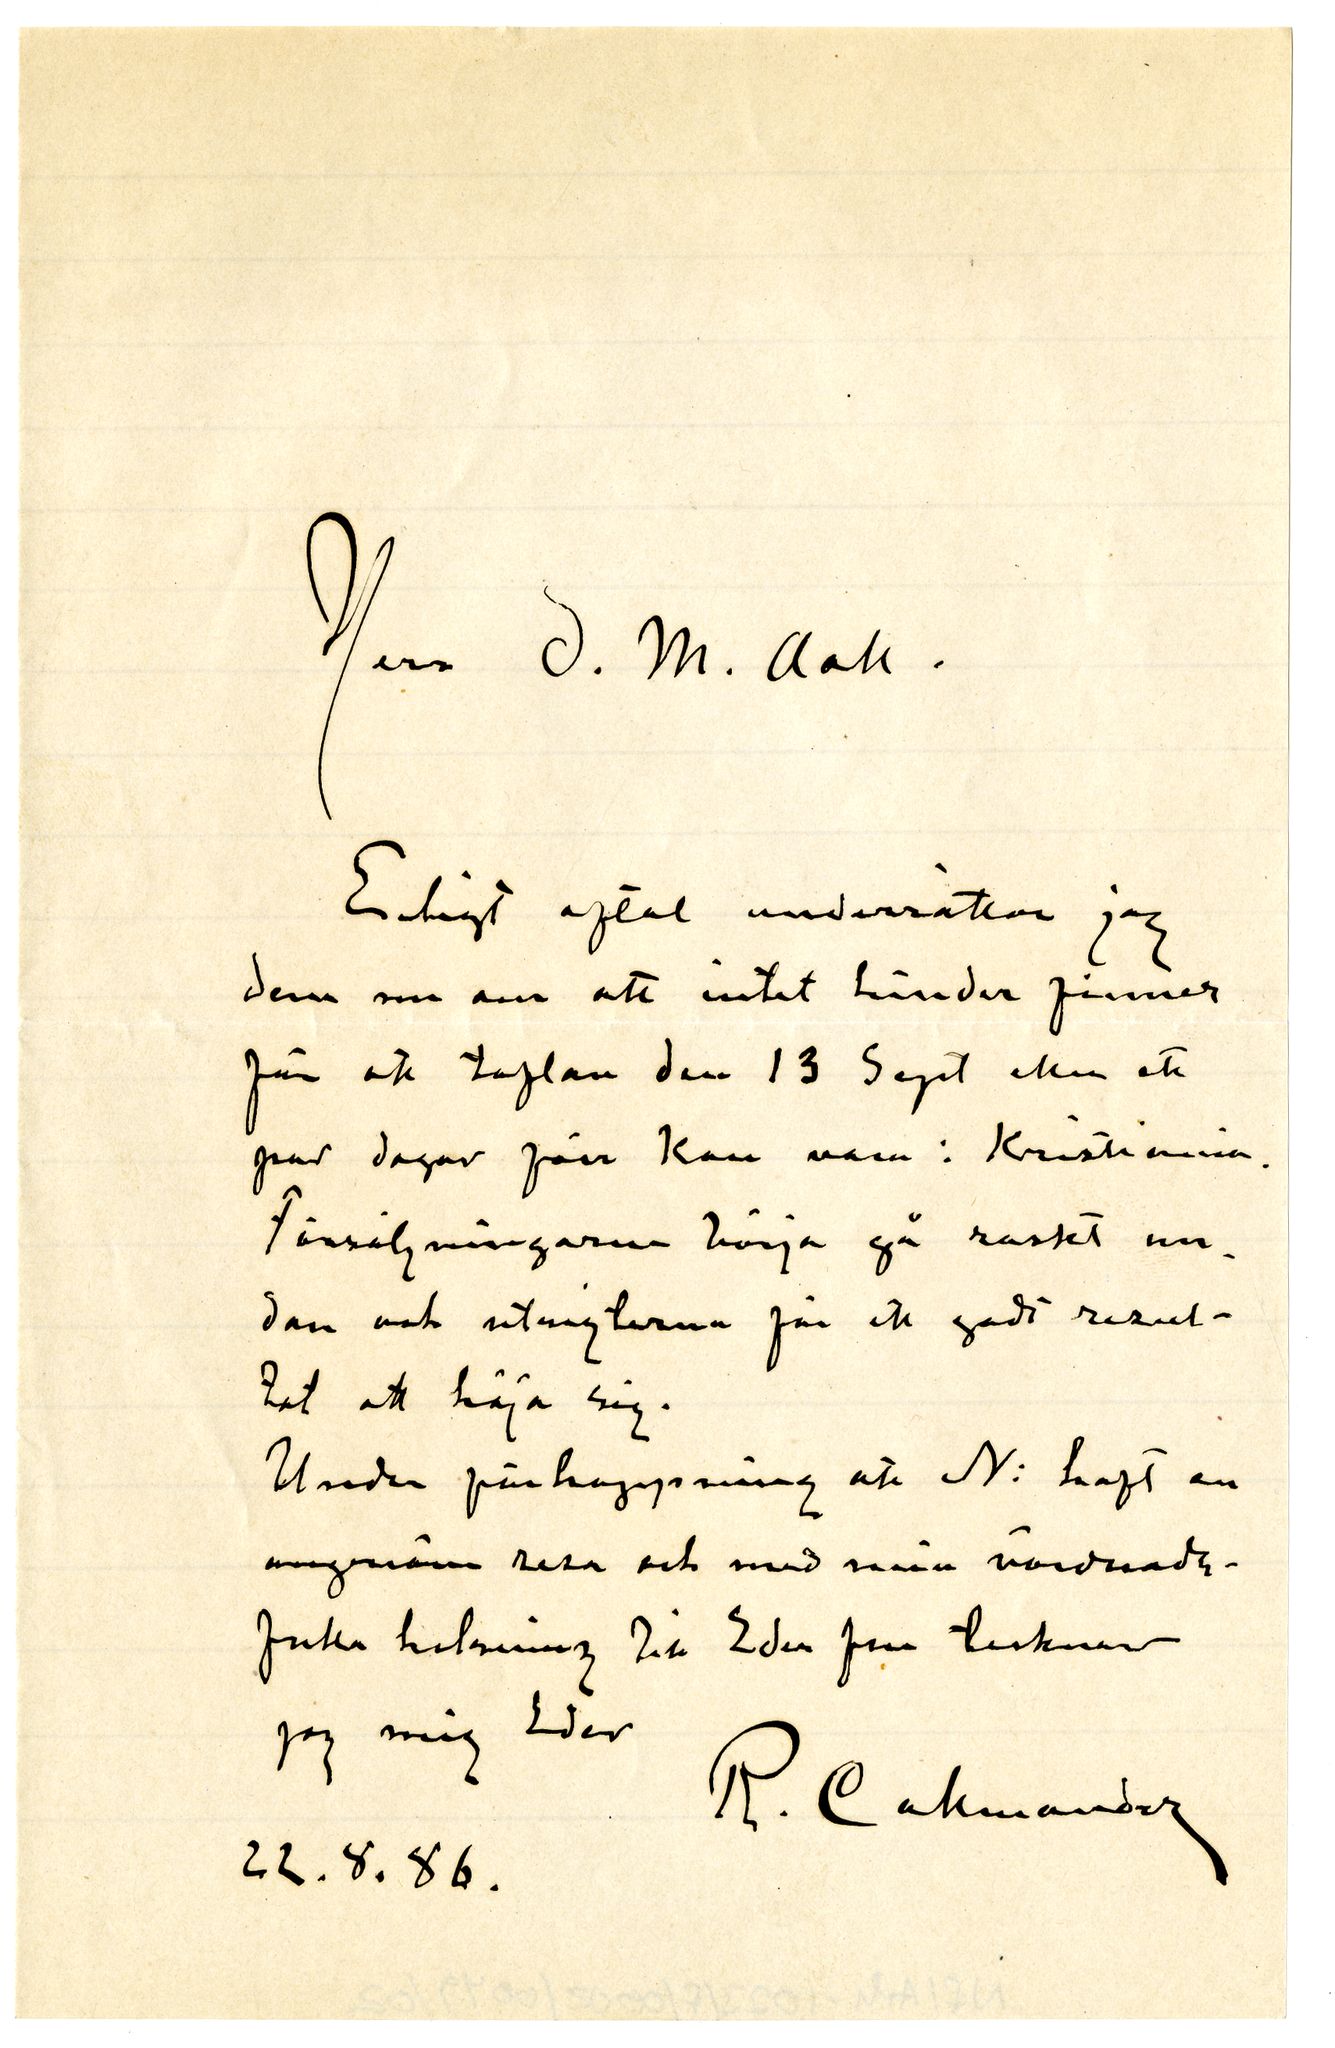 Herr D. M. Aall.
Enligt aftal underrättar jag
dem nu om att intet hinder finnes
för att taflan den 13 Sept eller ett
par dagar förr kan vara i Kristiania.
Försäljningarne börja gå raskt un-
dan och utsigterna för ett godt resul-
tat att höja sig.
Under förhoppning att Ni haft en
angenäm resa och med min vördnads-
fulla helsning till Eder fru tecknar
jag mig Eder
R. Cakmander
22.8.86.